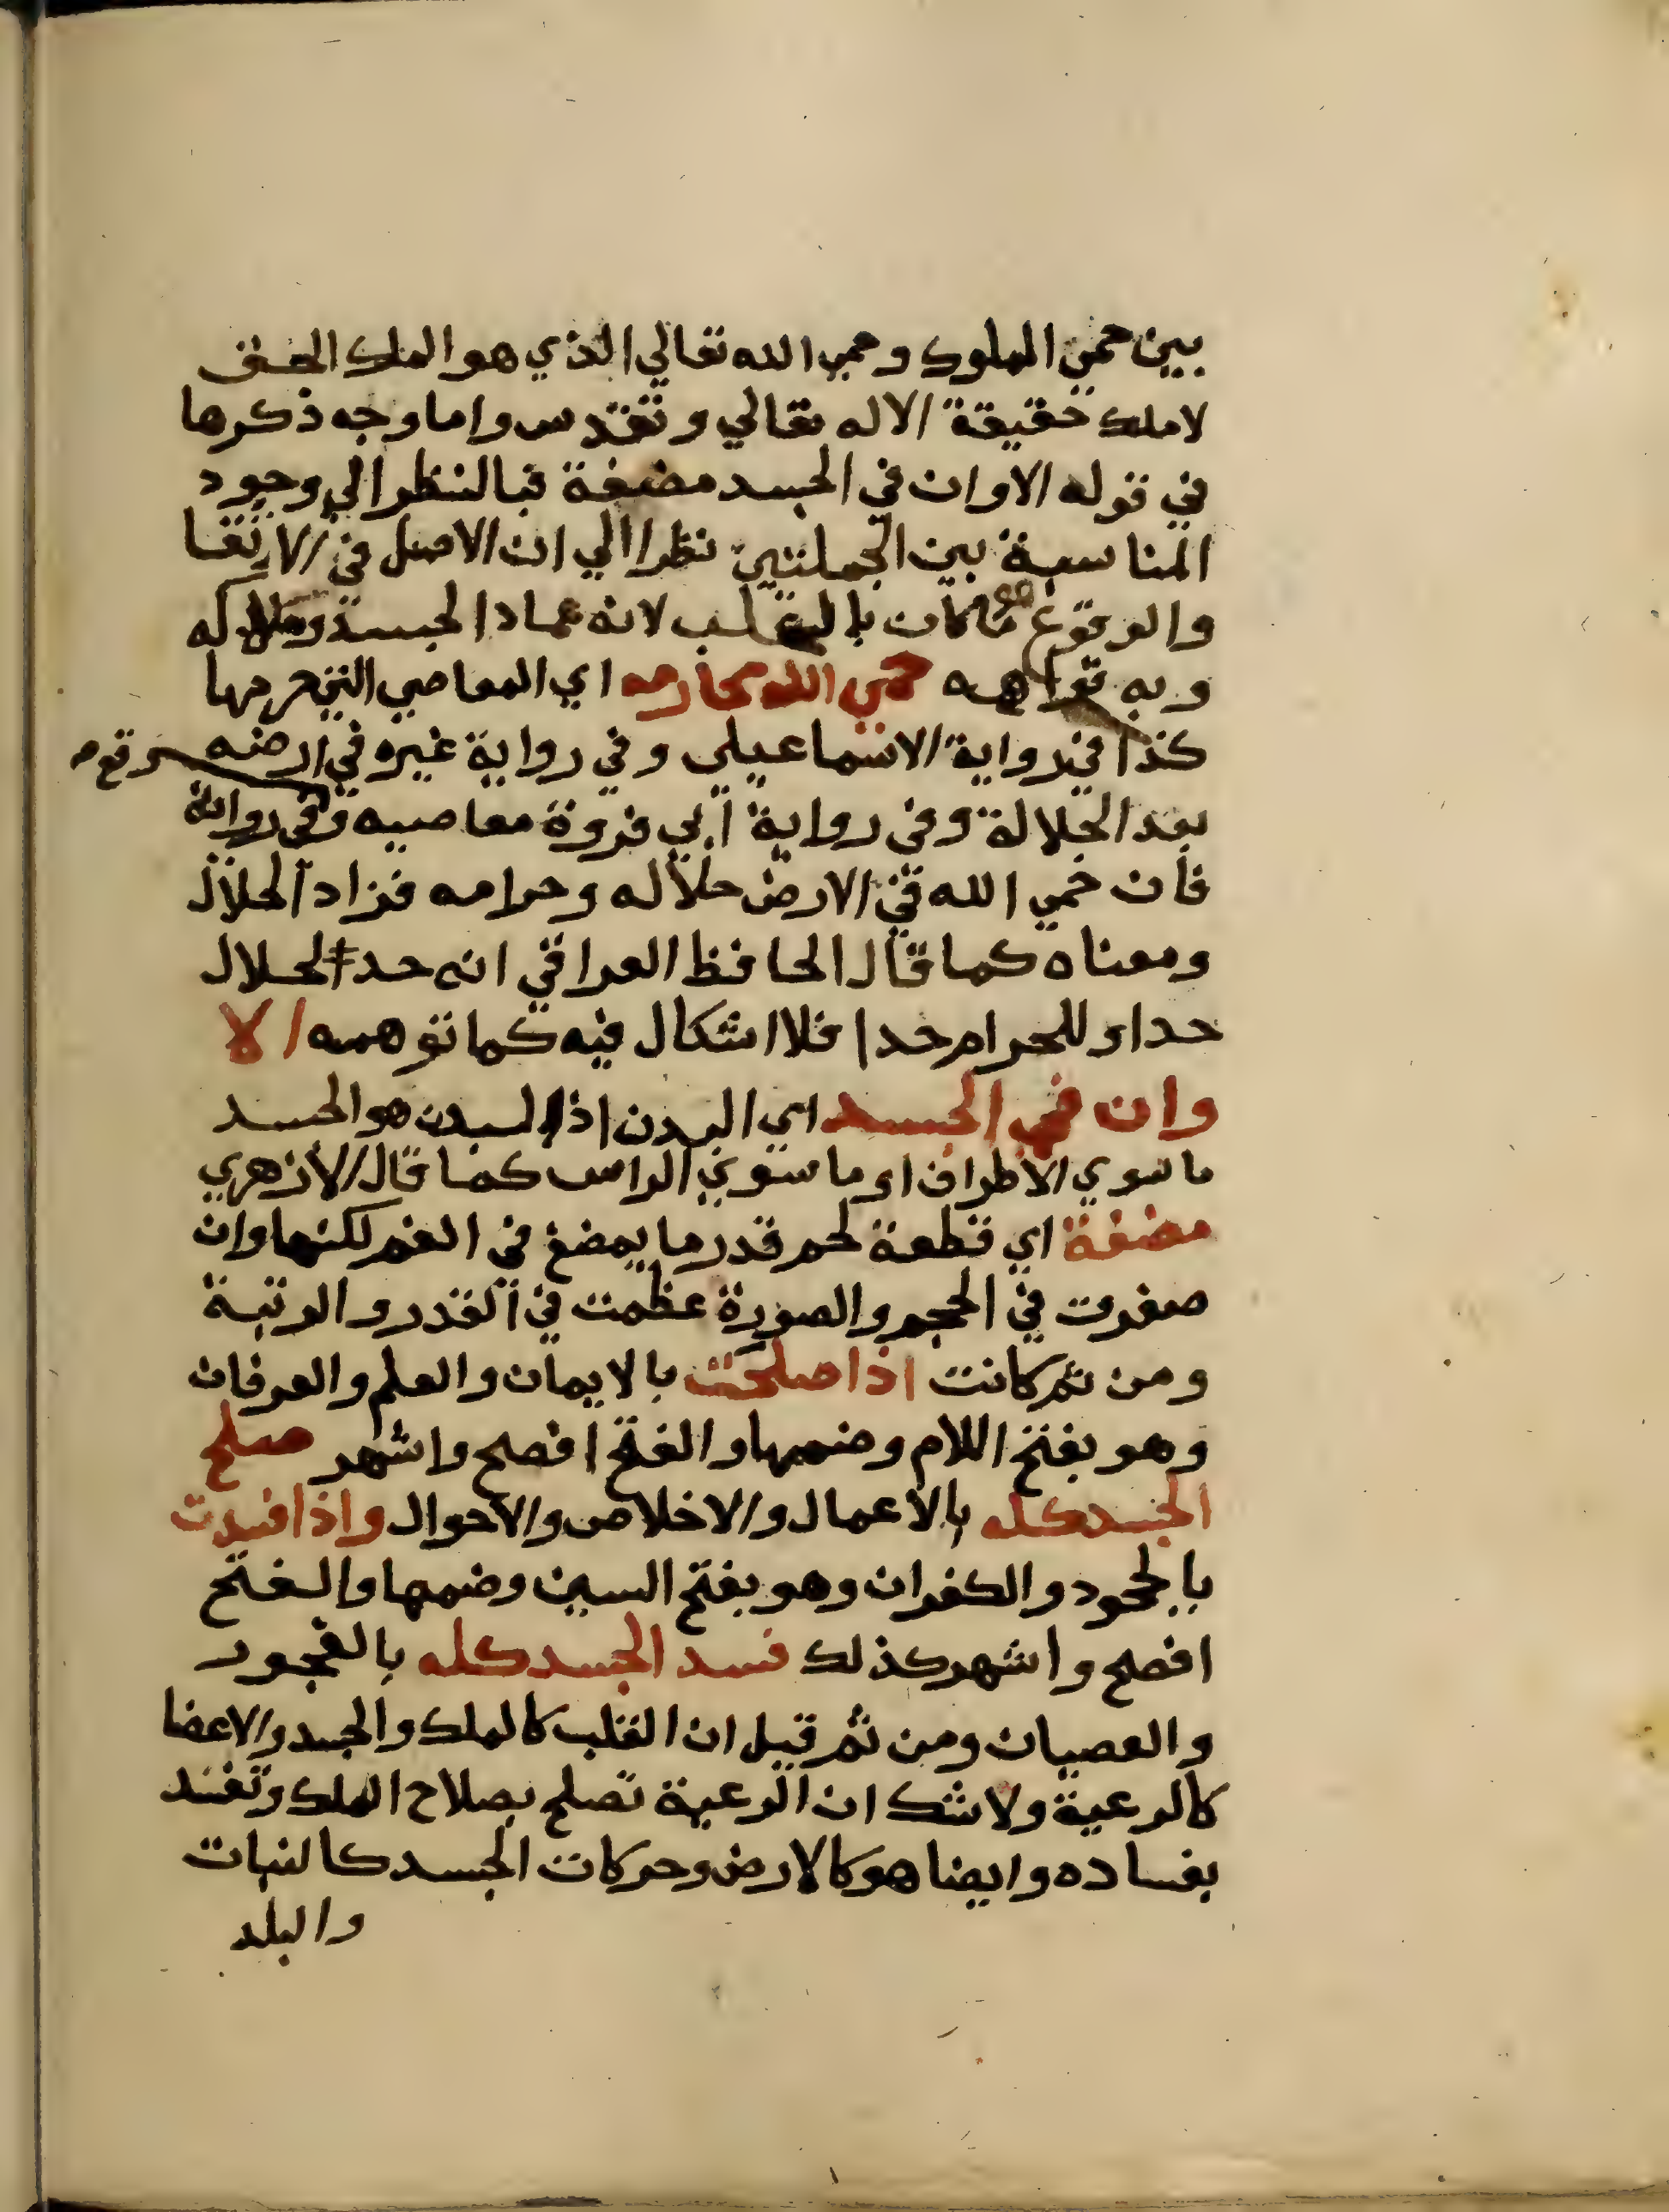 بين حمي الملوك وحمي الله تعالي الذي هو الملك الحق
لا ملك حقيقة الا له تعالي وتقدس واما وجه ذكرها
في قوله الا وان في الجسد مضغة فبالنظر الي وجود
المناسبة بين الجملتين نظرا الي ان الاصل في الارتقا
والوقوع ما كان بالقلب لانه عماد الجسد وملاكه
وبه قوامه حمي الله محارمه اي المعاصي التي حرمها
كذا في رواية الاسماعيلي وفي رواية غيره في ارضه
بعد الجلالة وفي رواية ابي فروة معاصيه وفي رواية
فان حمي الله في الارض حلاله وحرامه فزاد الحلال
ومعناه كما قال الحافظ العراقي انه حد الحلال
حدا وللحرام حدا فلا اشكال فيه كما توهمه الا
وان في الجسد اي البدن اذ البدن هو الجسد
ما سوي الاطراف او ما سوي الراس كما قال الازهري
مضغة اي قطعة لحم قدر ما يمضغ في الفم لكنها وان
صغرت في الحجم والصورة عظمت في القدر والرتبة
ومن ثم كانت اذا صلحت بالايمان والعلم والعرفان
وهو بفتح اللام وضمها والفتح افصح واشهر صلح
الجسد كله بالاعمال والاخلاص والاحوال واذا فسدت
بالجحود والكفران وهو بفتح السين وضمها والفتح
افصح واشهر كذلك فسد الجسد كله بالفجور
والعصيان ومن ثم قيل ان القلب كالملك والجسد والاعضا
كالرعية ولا شك ان الرعية تصلح بصلاح الملك وتفسد
بفساده وايضا هو كالارض وحركات الجسد كالنبات
والبلد